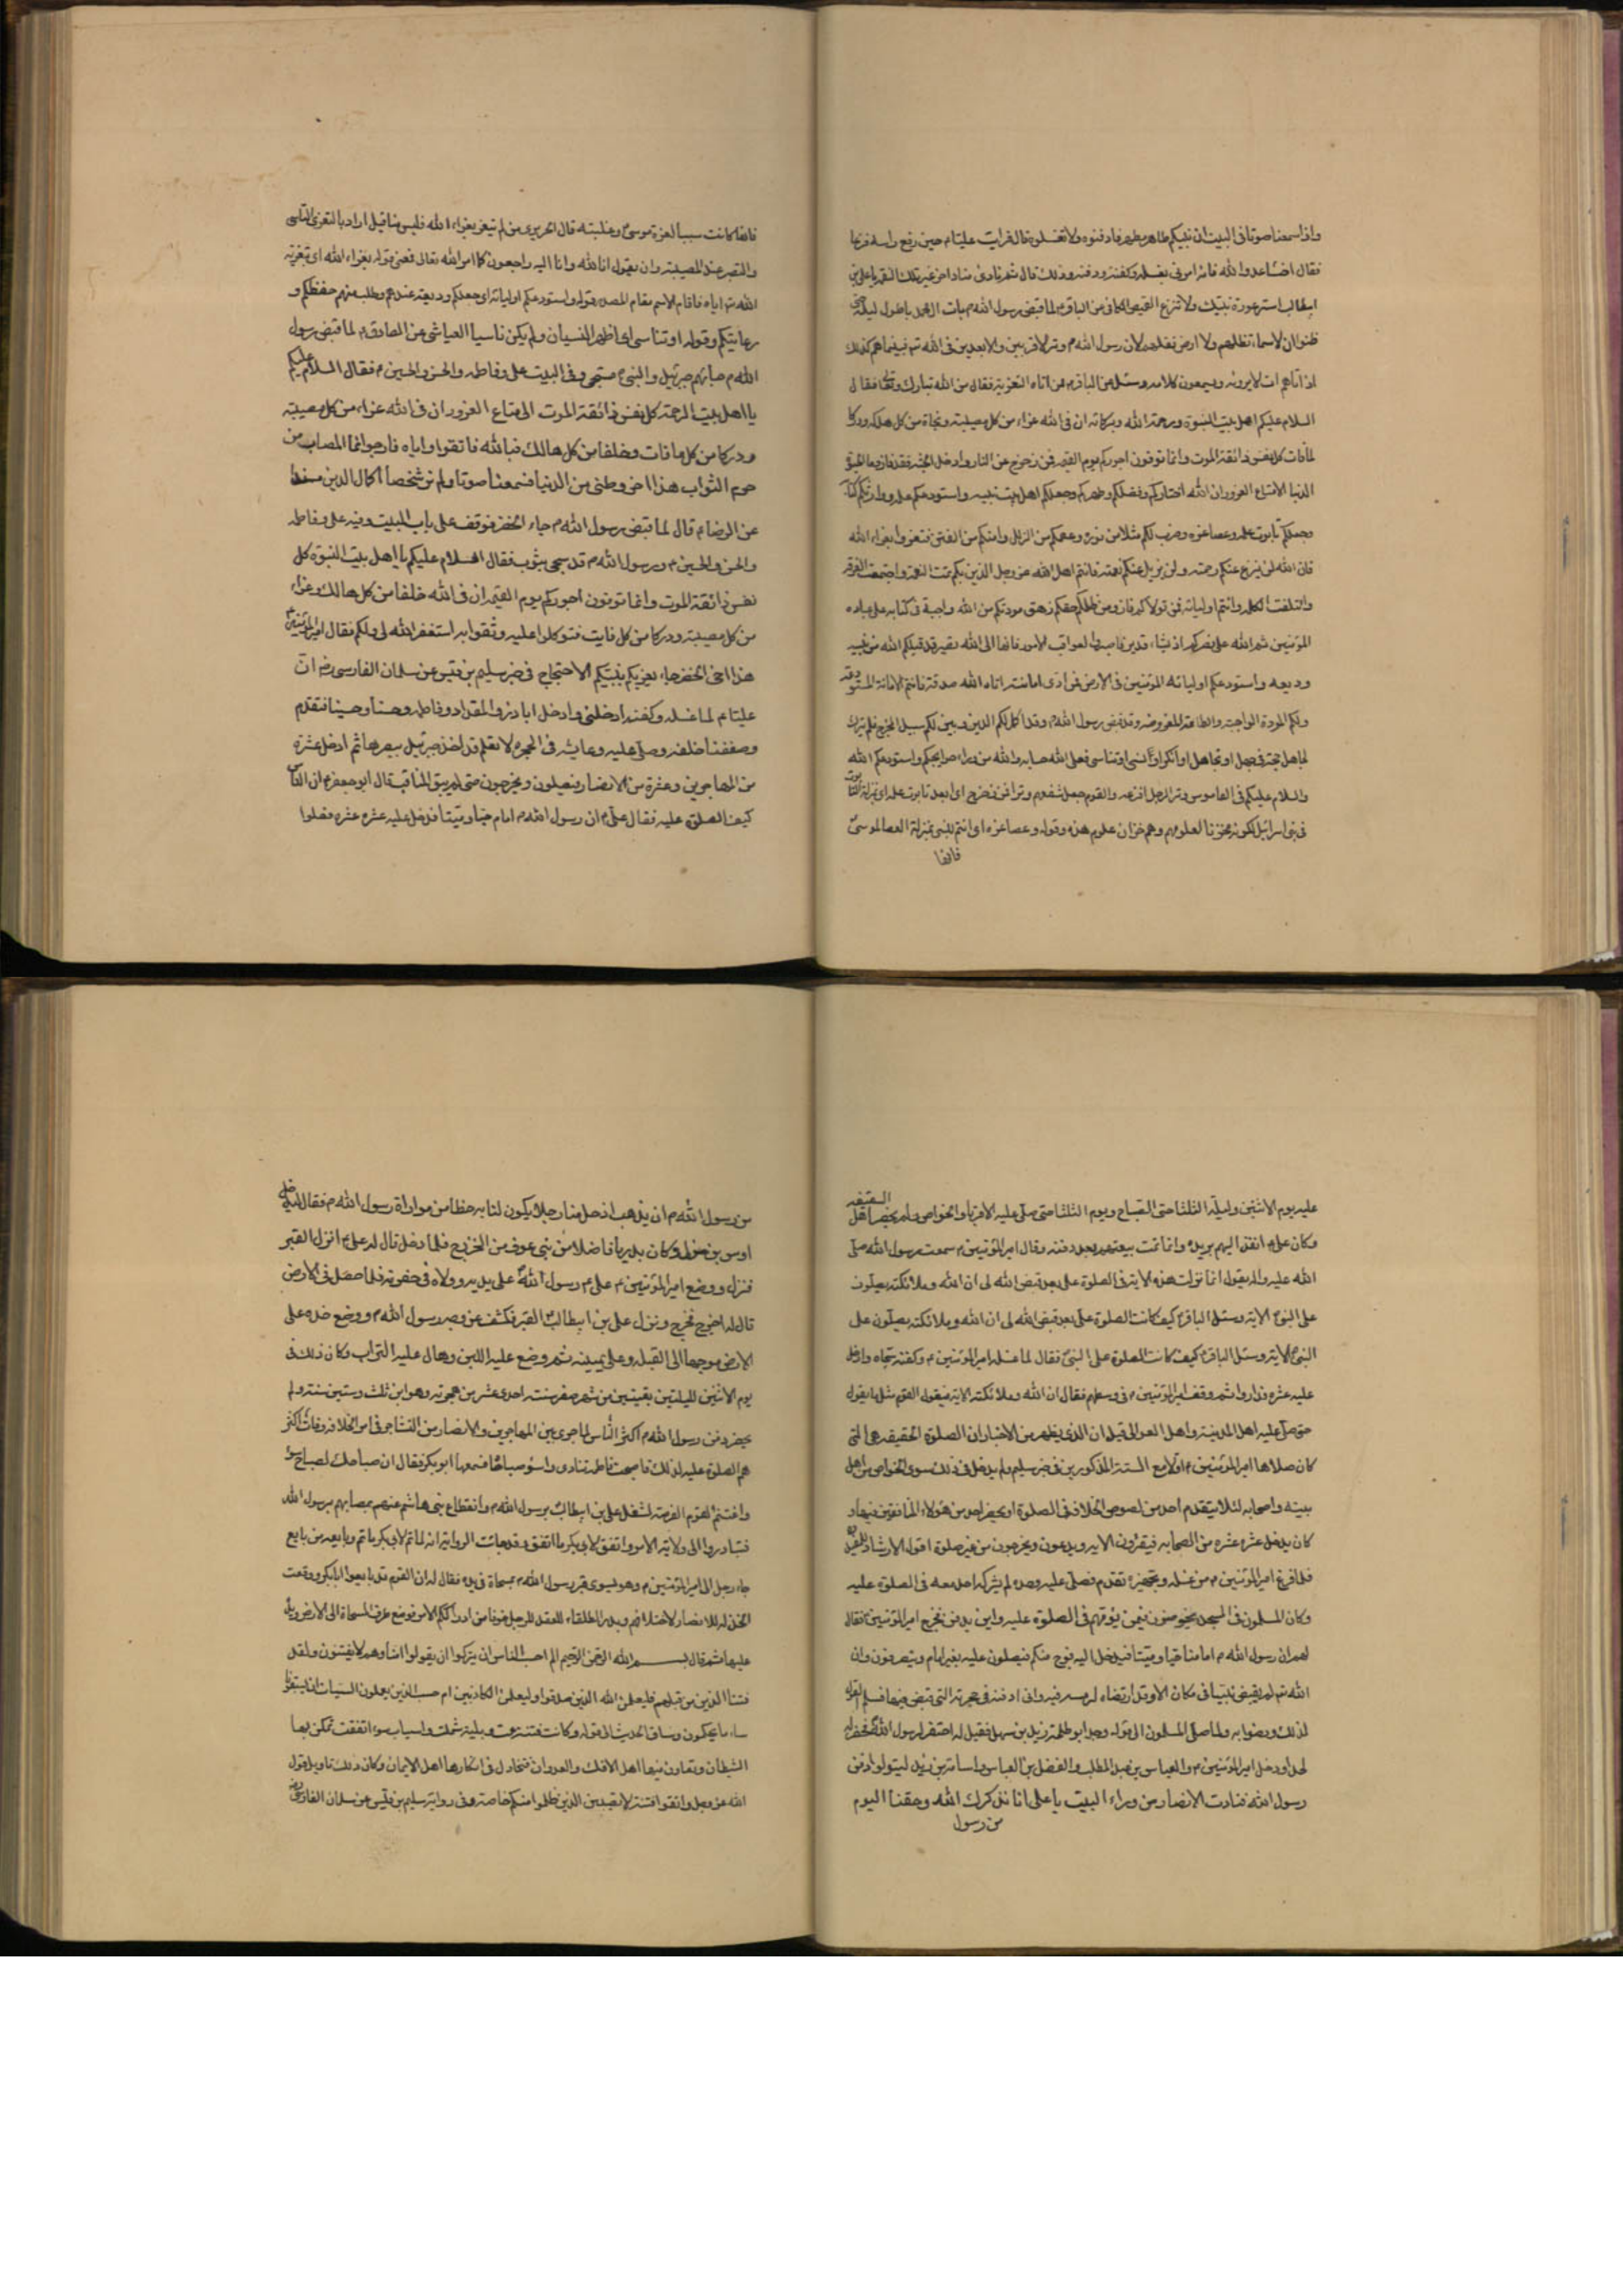 واذا سمعنا صوتا فى البيت ان نبيكم طاهر مطهر فادفنوه ولا تغسلوه قال فرايت عليا م حين رفع راسه فزعا
فقال اخسأ عدو الله فانه امرنى بغسله وكفنه ودفنه وذلك قال ثم نادى مناد اخر غير تلك النغمة يا على بن
ابيطالب استر عورة نبيك ولا تنزع القميص الكافى عن الباقر ع لما قبض رسول الله م بات ال محمد باطول ليلة حتى
ظنوا ان لا سماء تظلهم ولا ارض تقلهم لان رسول الله م وتر الاقربين والابعدين فى الله تم فبينما هم كذلك
اذ اتاهم ات لا يرونه ويسمعون كلامه وسئل عن الباقر م ممن اتاه التعزية فقال من الله تبارك وتعالى فقال
السلام عليكم اهل بيت النبوة ورحمة الله وبركاته ان فى الله عزاء من كل مصيبة ونجاة من كل هلكة ودركا
لما فات كل نفس ذائقة الموت وانما توفون اجوركم يوم القيمة فمن زحزح عن النار وادخل الجنة فقد فاز وما الحيوة
الدنيا الا متاع الغرور ان الله اختاركم وفضلكم وطهركم وجعلكم اهل بيت نبيه واستودعكم علمه واورثكم كتابه
وجعلكم تابوت علمه وعصا عزه وضرب لكم مثلا من نوره وعصمكم من الزلل وامنكم من الفتن فتعزوا بعزاء الله
فان الله لم ينزع عنكم رحمته ولن يزيل عنكم نعمته فانتم اهل الله عز وجل الذين بكم تمت النعمة واجتمعت الفرقة
وائتلفت الكلمة وانتم اوليائه فمن تولاكم فاز ومن ظلمكم حقكم زهق مودتكم من الله واجبة فى كتابه على عباده
المؤمنين ثم الله على نصركم اذا يشاء قدير فاصبروا لعواقب الامور فانها الى الله تصير قد قبلكم الله من نبيه
وديعة واستودعكم اوليائه المؤمنين فى الارض فمن ادى امانته اتاه الله صدقه فانتم الامانة المستودعة
ولكم المودة الواجبة والطاعة المفروضة وقد قبض رسول الله م وقد اكمل لكم الدين وبين لكم سبيل المخرج فلم يترك
لجاهل حجة فمن جهل او تجاهل او انكر او نسى او تناسى فعلى الله حسابه والله من وراء حوائجكم واستودعكم الله
والسلام عليكم فى القاموس وتر الرجل افزعه والقوم جعل شفعهم وترا فمن زحزح اى ابعد تابوت علمه اى بمنزلة التابوت
فى بنى اسرائيل لكونه مخزنا لعلومهم وهم خزان علوم هذه وقوله وعصا عزه اى انتم للنبى بمنزلة العصا لموسى ع
فانها
فانها كانت سببا لعزة موسى ع وغلبته قال الجزرى من لم يتعز بعزاء الله فليس منا قيل اراد بالتعزى التاسى
والتصبر عند المصيبة وان يقول انا لله وانا اليه راجعون كما امر الله تعالى فمعنى قوله بعزاء الله اى بتعزية
الله تم اياه فاقام الاسم مقام المصدر قوله واستودعكم اوليائه اى جعلكم وديعة عندهم وطلب منهم حفظكم و
رعايتكم وقوله او تناسى اى اظهر النسيان ولم يكن ناسيا العياشى عن الصادق م لما قبض رسول
الله م جائهم جبرئيل والنبى م مسجى وفى البيت على وفاطمه والحسن والحسين م فقال السلام عليكم
يا اهل بيت الرحمة كل نفس ذائقة الموت الى متاع الغرور ان فى الله عزاء من كل مصيبة
ودركا من كل ما فات وخلفا من كل هالك فبالله فاتقوا واياه فارجوا انما المصاب من
حرم الثواب هذا اخر وطئى من الدنيا فسمعنا صوتا ولم نر شخصا اكمال الدين
عن الرضا م قال لما قبض رسول الله م جاء الخضر فوقف على باب البيت وفيه على وفاطمه
والحسن والحسين م ورسول الله م قد سجى بثوب فقال السلام عليكم يا اهل بيت النبوة كل
نفس ذائقة الموت وانما توفون اجوركم يوم القيمة ان فى الله خلفا من كل هالك وعزاء
من كل مصيبة ودركا من كل فايت فتوكلوا عليه وثقوا به استغفر الله لى ولكم فقال امير المؤمنين م
هذا اخى الخضر جاء يعزيكم بنبيكم الاحتجاج فى خبر سليم بن قيس عن سلمان الفارسى رض ان
عليا م لما غسله وكفنه ادخلنى وادخل اباذر والمقداد وفاطمه وحسنا وحسينا فتقدم
وصففنا خلفه وصلى عليه وعايشه فى الحجرة لا تعلم قد اخذ جبرئيل ببصرها ثم ادخل عشرة
من المهاجرين وعشرة من الانصار فيصلون ويخرجون حتى لم يبق المناقب قال ابو جعفر م ان الناس
كيف الصلوة عليه فقال على م ان رسول الله م امام حيا وميتا فدخل عليه عشره عشره فصلوا
عليه يوم الاثنين وليلة الثلثا حتى الصباح ويوم الثلثا حتى صلى عليه الاقرباء والخواص ولم يحضر اهل السقيفه
وكان على م انفذ اليهم بريدة وانما تمت بيعتهم بعد دفنه وقال امير المؤمنين م سمعت رسول الله صلى
الله عليه واله يقول انما نزلت هذه الاية فى الصلوة على بعد قبض الله لى ان الله وملائكته يصلون
على النبى الاية وسئل الباقر م كيف كانت الصلوة على بعد قبض الله لى ان الله وملائكته يصلون على
النبى الاية وسئل الباقر م كيف كانت الصلوة على النبى فقال لما غسله امير المؤمنين م وكفنه سجاه وادخل
عليه عشره فداروا ثم وقف امير المؤمنين م فى وسطهم فقال ان الله وملائكته الاية فيقول القوم مثل ما يقول
حتى صلى عليه اهل المدينة واهل العوالى قيل ان الذى يظهر من الاخبار ان الصلوة الحقيقه هى التى
كان صلاها امير المؤمنين م اولا مع الستة المذكورين فى خبر سليم ولم يدخل فى ذلك سوى الخواص من اهل
بيته واصحابه لئلا يتقدم احد من لصوص الخلافة فى الصلوة او يحضر احد من هؤلاء المنافقين فيها و
كان يدخل عشره عشره من الصحابه فيقرؤن الاية ويدعون ويخرجون من غير صلوة اقول الارشاد للمفيد
فلما فرغ امير المؤمنين م من غسله وتجهيزه تقدم فصلى عليه وحده لم يشركه احد معه فى الصلوة عليه
وكان المسلمون فى المسجد يخوضون فيمن يؤمهم فى الصلوة عليه واين يدفن فخرج امير المؤمنين م فقال
لهم ان رسول الله م امامنا حيا وميتا فيدخل اليه فوج منكم فيصلون عليه بغير امام وينصرفون وان
الله تم لم يقبض نبيا فى مكان الا وقد ارتضاه لرمسه فيه وانى ادفنه فى حجرته التى قبض فيها فسلم القوم
لذلك ورضوا به ولما صلى المسلمون الى قوله وجد ابو طلحة زيد بن سهل فقيل له احتفر لرسول الله فحفر له
لحدا ودخل امير المؤمنين م والعباس بن عبد المطلب والفضل بن العباس واسامة بن زيد ليتولوا دفن
رسول الله فنادت الانصار من وراء البيت يا على انا نذكرك الله وحقنا اليوم
من رسول
من رسول الله م ان يذهب ادخل منا رجلا يكون لنا به حظا من مواراة رسول الله م فقال ليدخل
اوس بن خولى وكان بدريا فاضلا من بنى عوف من الخزرج فلما دخل قال له على م انزل القبر
فنزل ووضع امير المؤمنين م على م رسول الله على يديه وولاه فى حفرته فلما حصل فى الارض
قال له اخرج فخرج ونزل على بن ابيطالب القبر فكشف عن وجه رسول الله م ووضع خده على
الارض موجها الى القبله وعلى يمينه ثم وضع عليه اللبن وهال عليه التراب وكان ذلك فى
يوم الاثنين لليلتين بقيتين من شهر صفر سنة احدى عشر من هجرته وهو ابن ثلث وستين سنة ولم
يحضر دفن رسول الله م اكثر الناس لما جرى بين المهاجرين والانصار من التشاجر فى امر الخلافة وفات اكثر
هم الصلوة عليه لذلك فاصبحت فاطمه تنادى واسؤ صباحاه فسمعها ابو بكر فقال ان صباحك لصباح سوء
واغتنم القوم الفرصة لشغل على بن ابيطالب برسول الله م وانقطاع بنى هاشم عنهم بمصابهم برسول الله
فتبادروا الى ولاية الامر واتفق لابى بكر ما اتفق وقد جائت الرواية انه لما تم لابى بكر ما تم وبايعه من بايع
جاء رجل الى امير المؤمنين م وهو يسوى قبر رسول الله م بمسحاة فى يده فقال له ان القوم قد بايعوا ابا بكر ووقعت
الخذله للانصار لاختلافهم وبدر الطلقاء للعقد للرجل خوفا من ادراككم الامر فوضع طرف المسحاة الى الارض ويده
عليها ثم قال بسم الله الرحمن الرحيم الم احسب الناس ان يتركوا ان يقولوا امنا وهم لا يفتنون ولقد
فتنا الذين من قبلهم فليعلمن الله الذين صدقوا وليعلمن الكاذبين ام حسب الذين يعملون السيئات ان يسبقونا
ساء ما يحكمون وساق الحديث الى قوله وكانت فتنة عمت وبلية شملت واسباب سوء اتفقت تمكن بها
الشيطان وتعاون فيها اهل الافك والعدوان فتخاذل فى انكارها اهل الايمان وكان ذلك تاويل قول
الله عز وجل واتقوا فتنة لا تصيبن الذين ظلموا منكم خاصة وفى رواية سليم بن قيس عن سلمان الفارسى رض